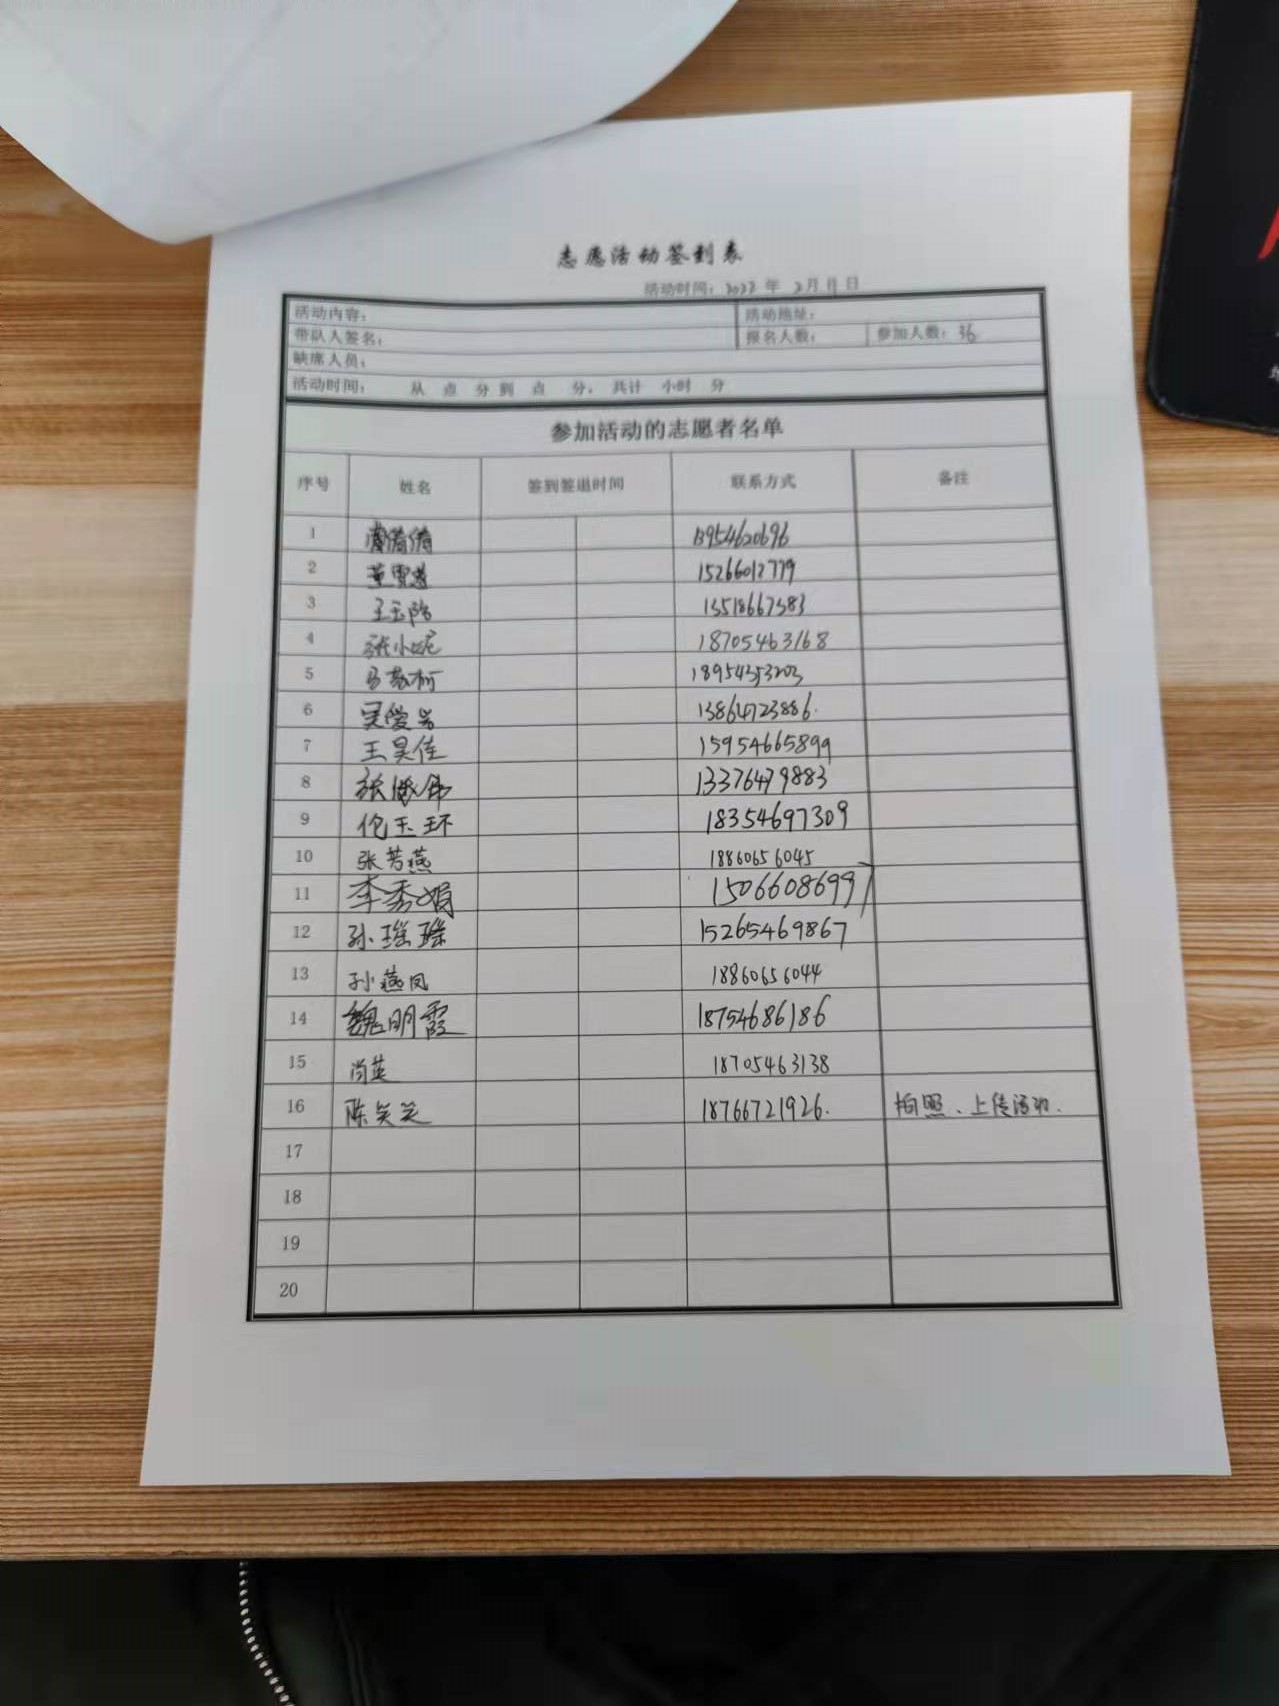 志愿活动签到表
活动时间：2022 年 2月11日
活动内容： 活动地址：
带队人签名： 报名人数： 参加人数：36
缺席人员：
活动时间： 从 点 分到 点 分，共计 小时 分
参加活动的志愿者名单
序号 姓名 签到签退时间 联系方式 备注
1 倩倩 13954620696
2 董雪莲 15266012779
3 王玉 13518667383
4 张小妮 18705463168
5 马 18954353203
6 吴爱 13864723886.
7 王昊佳 15954665899
8 张 13376479883
9 玉环 18354697309
10 张芳燕 18860656045
11 李秀娟 15066086997
12 孙瑶瑶 15265469867
13 孙燕凤 18860656044
14 魏明霞 18754686186
15 尚英 18705463138
16 陈笑笑 18766721926. 拍照、上传活动.
17
18
19
20